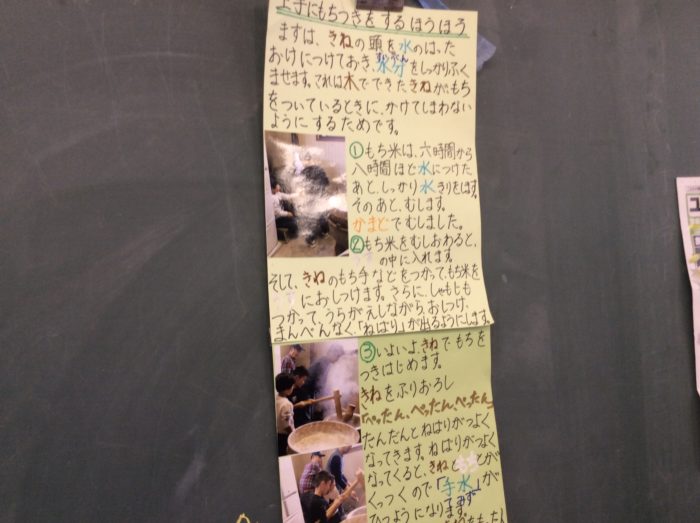 上手にもちつきをするほうほう
まずは、きねの頭を水のはった
おけにつけておき、水分をしっかりふく
ませます。これは木でできたきねが、もち
をついているときに、かけてしまわない
ようにするためです。
①もち米は、六時間から
八時間ほど水につけた
あと、しっかり水きりをします。
そのあと、むします。
かまどでむしました。
②もち米をむしおわると、
の中に入れます。
そして、きねのもち手などをつかって、もち米を
におしつけます。さらに、しゃもじも
つかって、うらがえしながら、おしつけ、
まんべんなく、「ねばり」が出るようにします。
③いよいよ、きねでもちを
つきはじめます。
きねをふりおろし
「ぺったん、ぺったん、ぺったん」
だんだんとねばりがつよく
なってきます。ねばりがつよく
なってくると、きねともちとが
くっつくので「手水」が
てみず
ひつようになります。